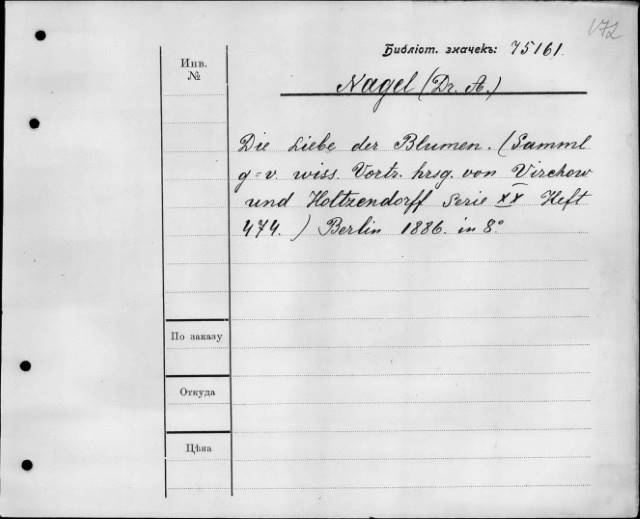 172
Библіот. значекъ: 75161.
Инв.
№
Nagel (Dr. A.)
Die Liebe der Blumen. (Samml
g=v. wiss. Vortr. hrsg. von Virchow
und Holtzendorff Serie XX Heft
474.) Berlin 1886. in 8°
По заказу
Откуда
Цѣна